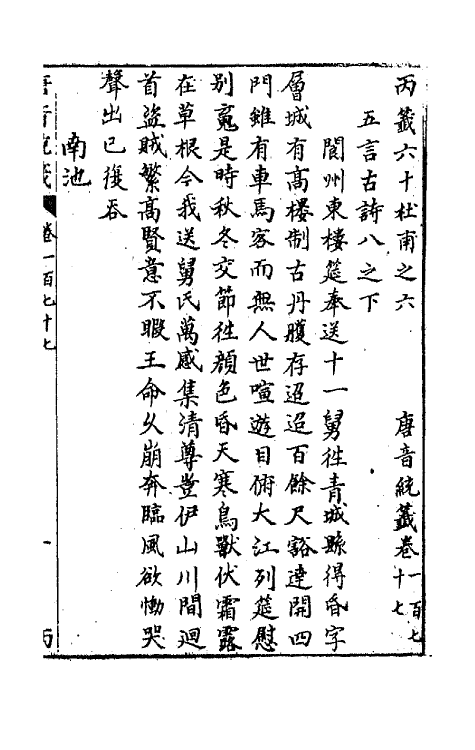 丙籤六十杜甫之六　唐音統籤卷一百七十七
五言古詩八之下
閬州東樓筵奉送十一舅徃青城縣得昏字
層城有高樓制古丹雘存迢迢百餘尺豁達開四
門雖有車馬客而無人世喧遊目俯大江列筵慰
别䰟是時秋冬交節徃顔色昏天寒鳥獸伏霜露
在草根今我送舅氏萬感集清尊豈伊山川間迴
首盜賊繁高賢意不暇王命久崩奔臨風欲慟哭
聲出已復吞
南池
唐音統籤
卷一百七十七
一
丙